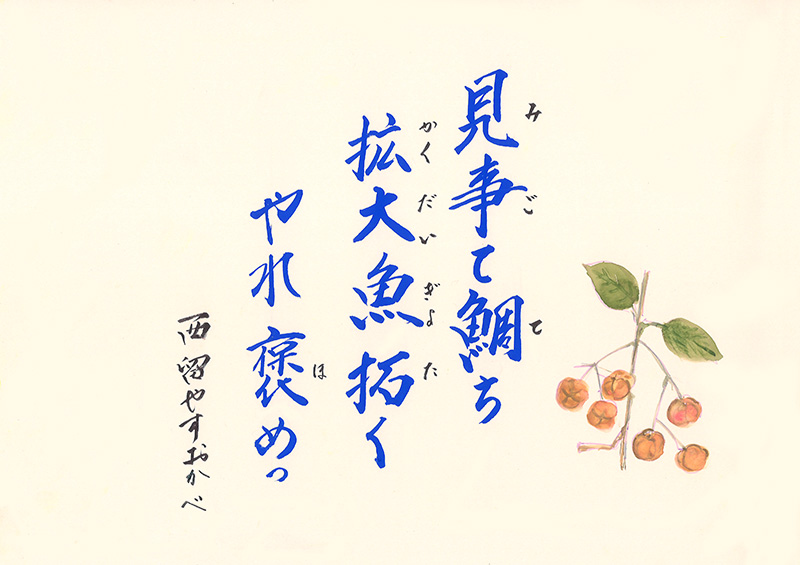 見事て鯛ち
みごて
拡大魚拓く
かくだいぎょた
やれ褒めっ
ほ
西留やすおかべ